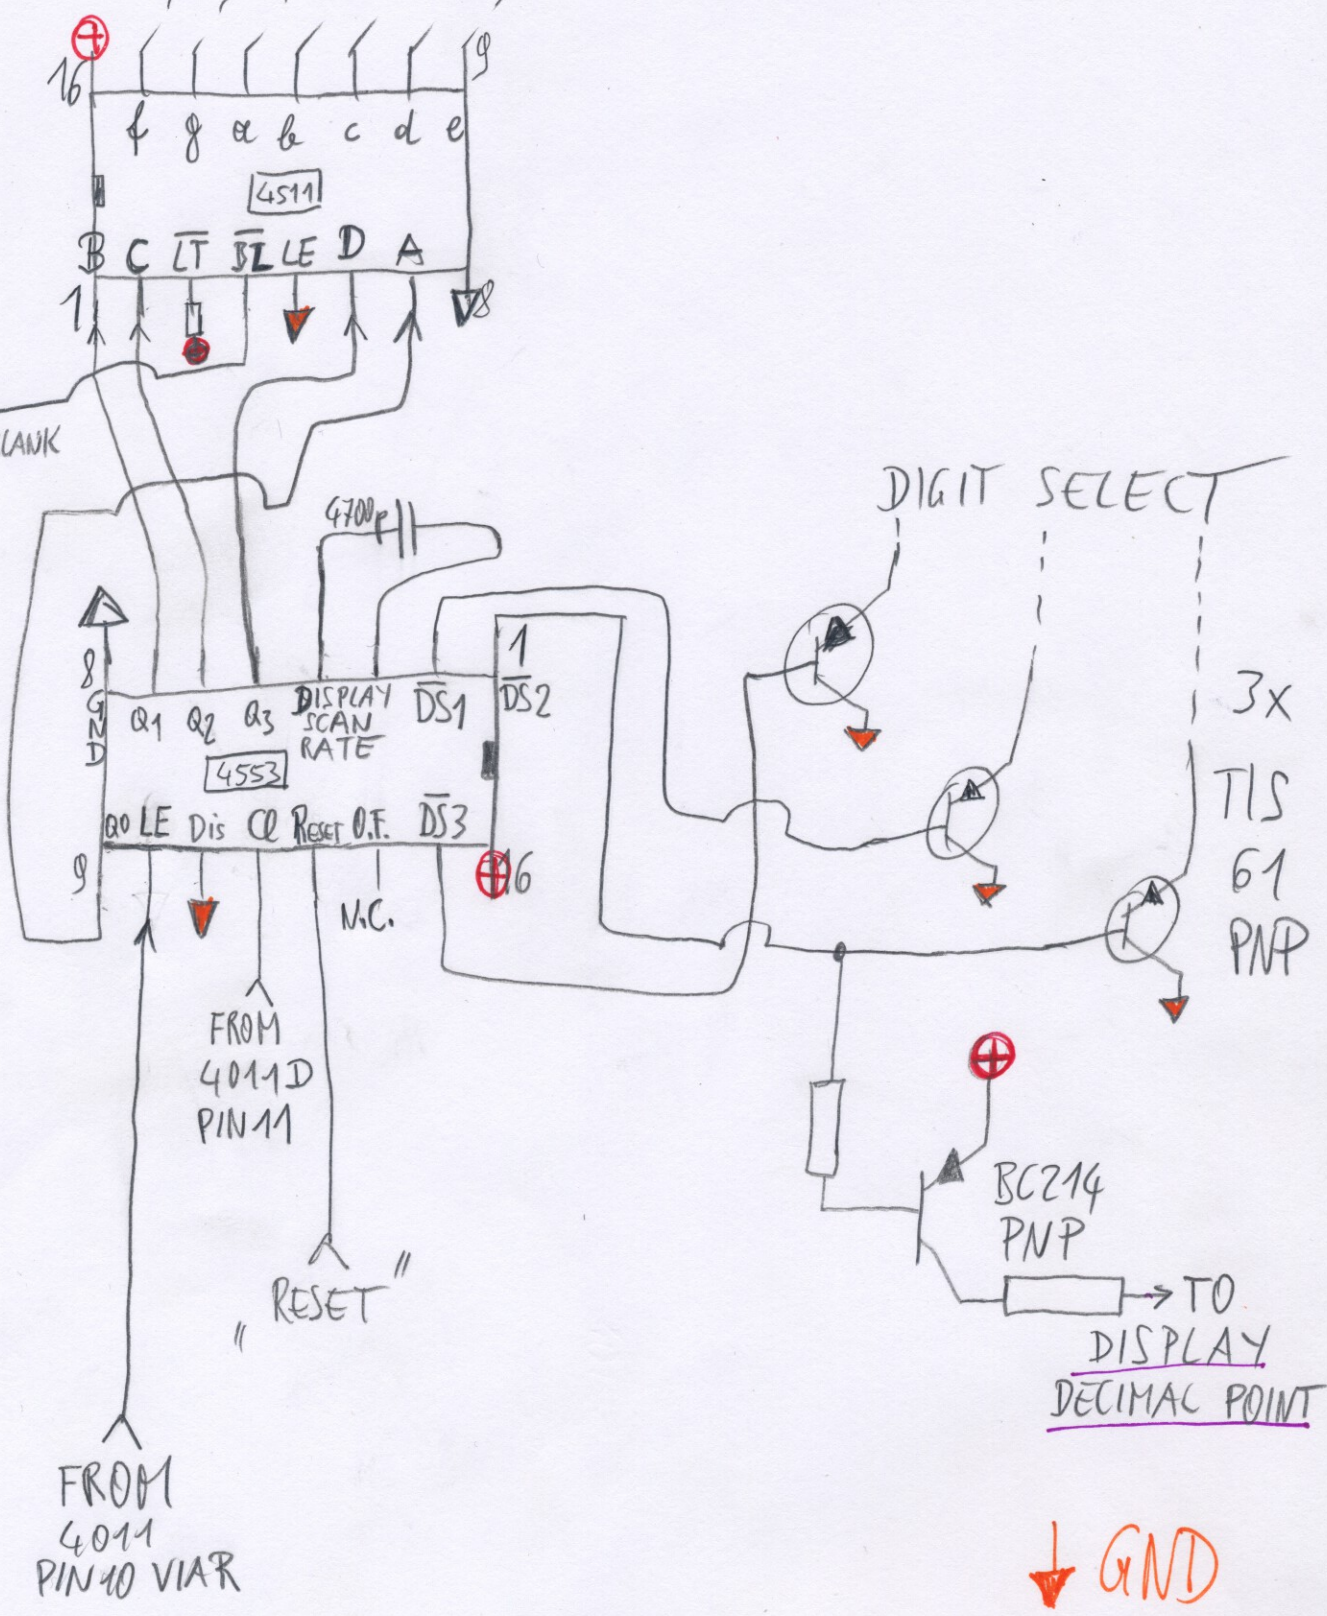 16
9
f g a b c d e
4511
B C LT BL LE D A
1
8
LANK
4700p
DIGIT SELECT
8
1
GND
Q1 Q2 Q3 DISPLAY SCAN RATE DS1 DS2
4553
Q0 LE Dis Cl RESET O.F. DS3
9
16
N.C.
3x
TIS
61
PNP
FROM
4011D
PIN11
BC214
PNP
" RESET "
TO
DISPLAY
DECIMAL POINT
FROM
4011
PIN10 VIAR
GND